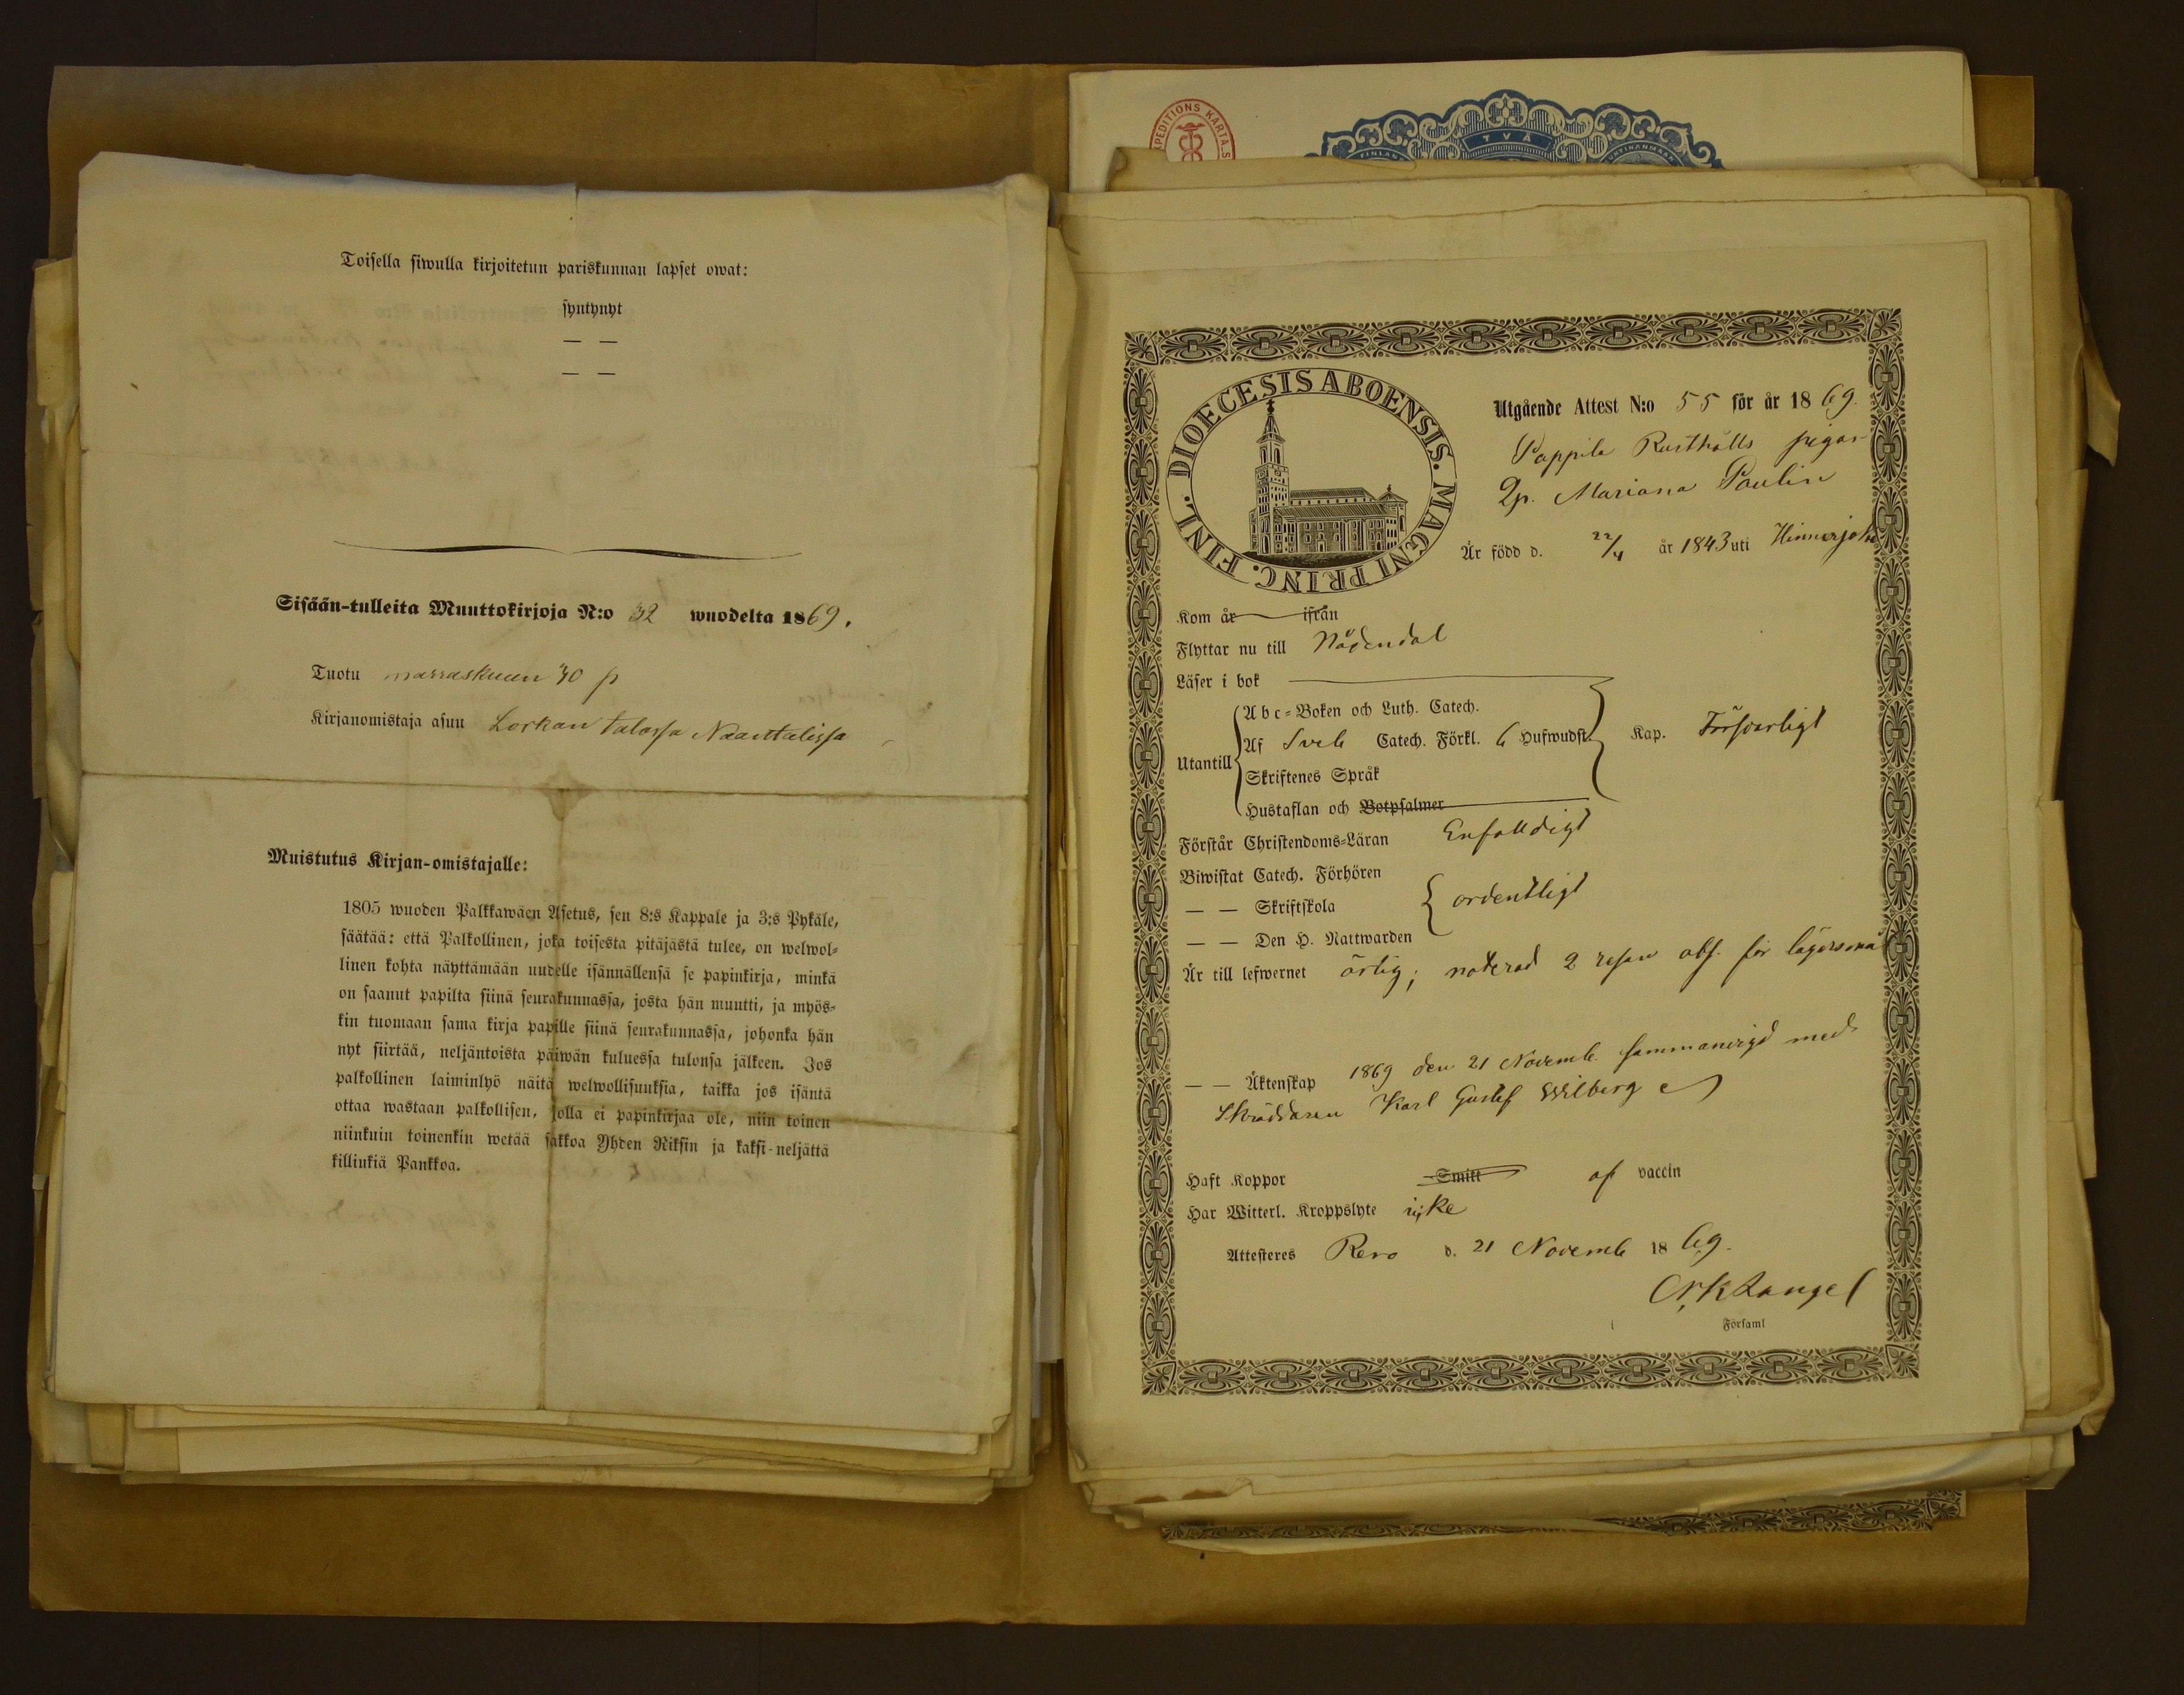 Toisella siwulla kirjoitetun pariskunnan lapset owat:
syntynyt
— —
— —
Sisään-tulleita Muuttokirjoja N:o 32 wuodelta 1869.
Tuotu marraskuun 30 p
Kirjanomistaja asuu Lorkan talossa Naantalissa
Muistutus Kirjan-omistajalle:
1805 wuoden Palkkawäen Asetus, sen 8:s Kappale ja 3:s Pykäle,
säätää: että Palkollinen, joka toisesta pitäjästä tulee, on welwol-
linen kohta näyttämään uudelle isännällensä se papinkirja, minkä
on saanut papilta siinä seurakunnassa, josta hän muutti, ja myös-
kin tuomaan sama kirja papille siinä seurakunnassa, johonka hän
nyt siirtää, neljäntoista päiwän kuluessa tulonsa jälkeen. Jos
palkollinen laiminlyö näitä welwollisuuksia, taikka jos isäntä
ottaa wastaan palkollisen, jolla ei papinkirjaa ole, niin toinen
niinkuin toinenkin wetää sakkoa Yhden Riksin ja kaksi-neljättä
killinkiä Pankkoa.
EXPEDITIONS KARTA S
TVÅ
FINLAN
UNTINANMAA
DIOECESIS ABOENSIS. MAGNI PRINC. FINL.
Utgående Attest N:o 55 för år 1869.
Pappila Rusthålls pigan
Qp. Mariana Paulin
Är född d. 22/4 år 1843 uti Hinnerjoki
Kom år ifrån
Flyttar nu till Nådendal
Läser i bok
Abc-Boken och Luth. Catech.
Utantill Af Sveb Catech. Förkl. 6 Hufwudst. Kap. Försvarligt
Skriftenes Språk
Hustaflan och Botpsalmer
Förstår Christendoms-Läran Enfalldigt
Biwistat Catech. Förhören
— — Skriftskola ordentligt
— — Den H. Nattwarden
Är till lefwernet ärlig; noterad 2 resan abs. för lägersmål
— — Äktenskap 1869 den 21 Novemb. sammanvigd med
Skräddaren Karl Gustef Wilberg
Haft Koppor Smitt af vaccin
Har Witterl. Kroppslyte icke
Attesteres Revo d. 21 Novemb 1869.
Langel
i Församl